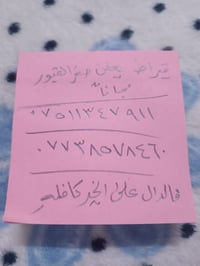 يعلن حفر القبور
مجاناً
٠٧٥١١٣٤٧٩١١
٠٧٧٣٨٥٧٨٤٦٠
فالدال على الخير كفاعله